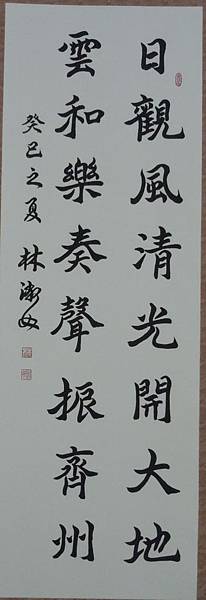 日觀風清光開大地
雲和樂奏聲振齊州
癸巳之夏 林淑女